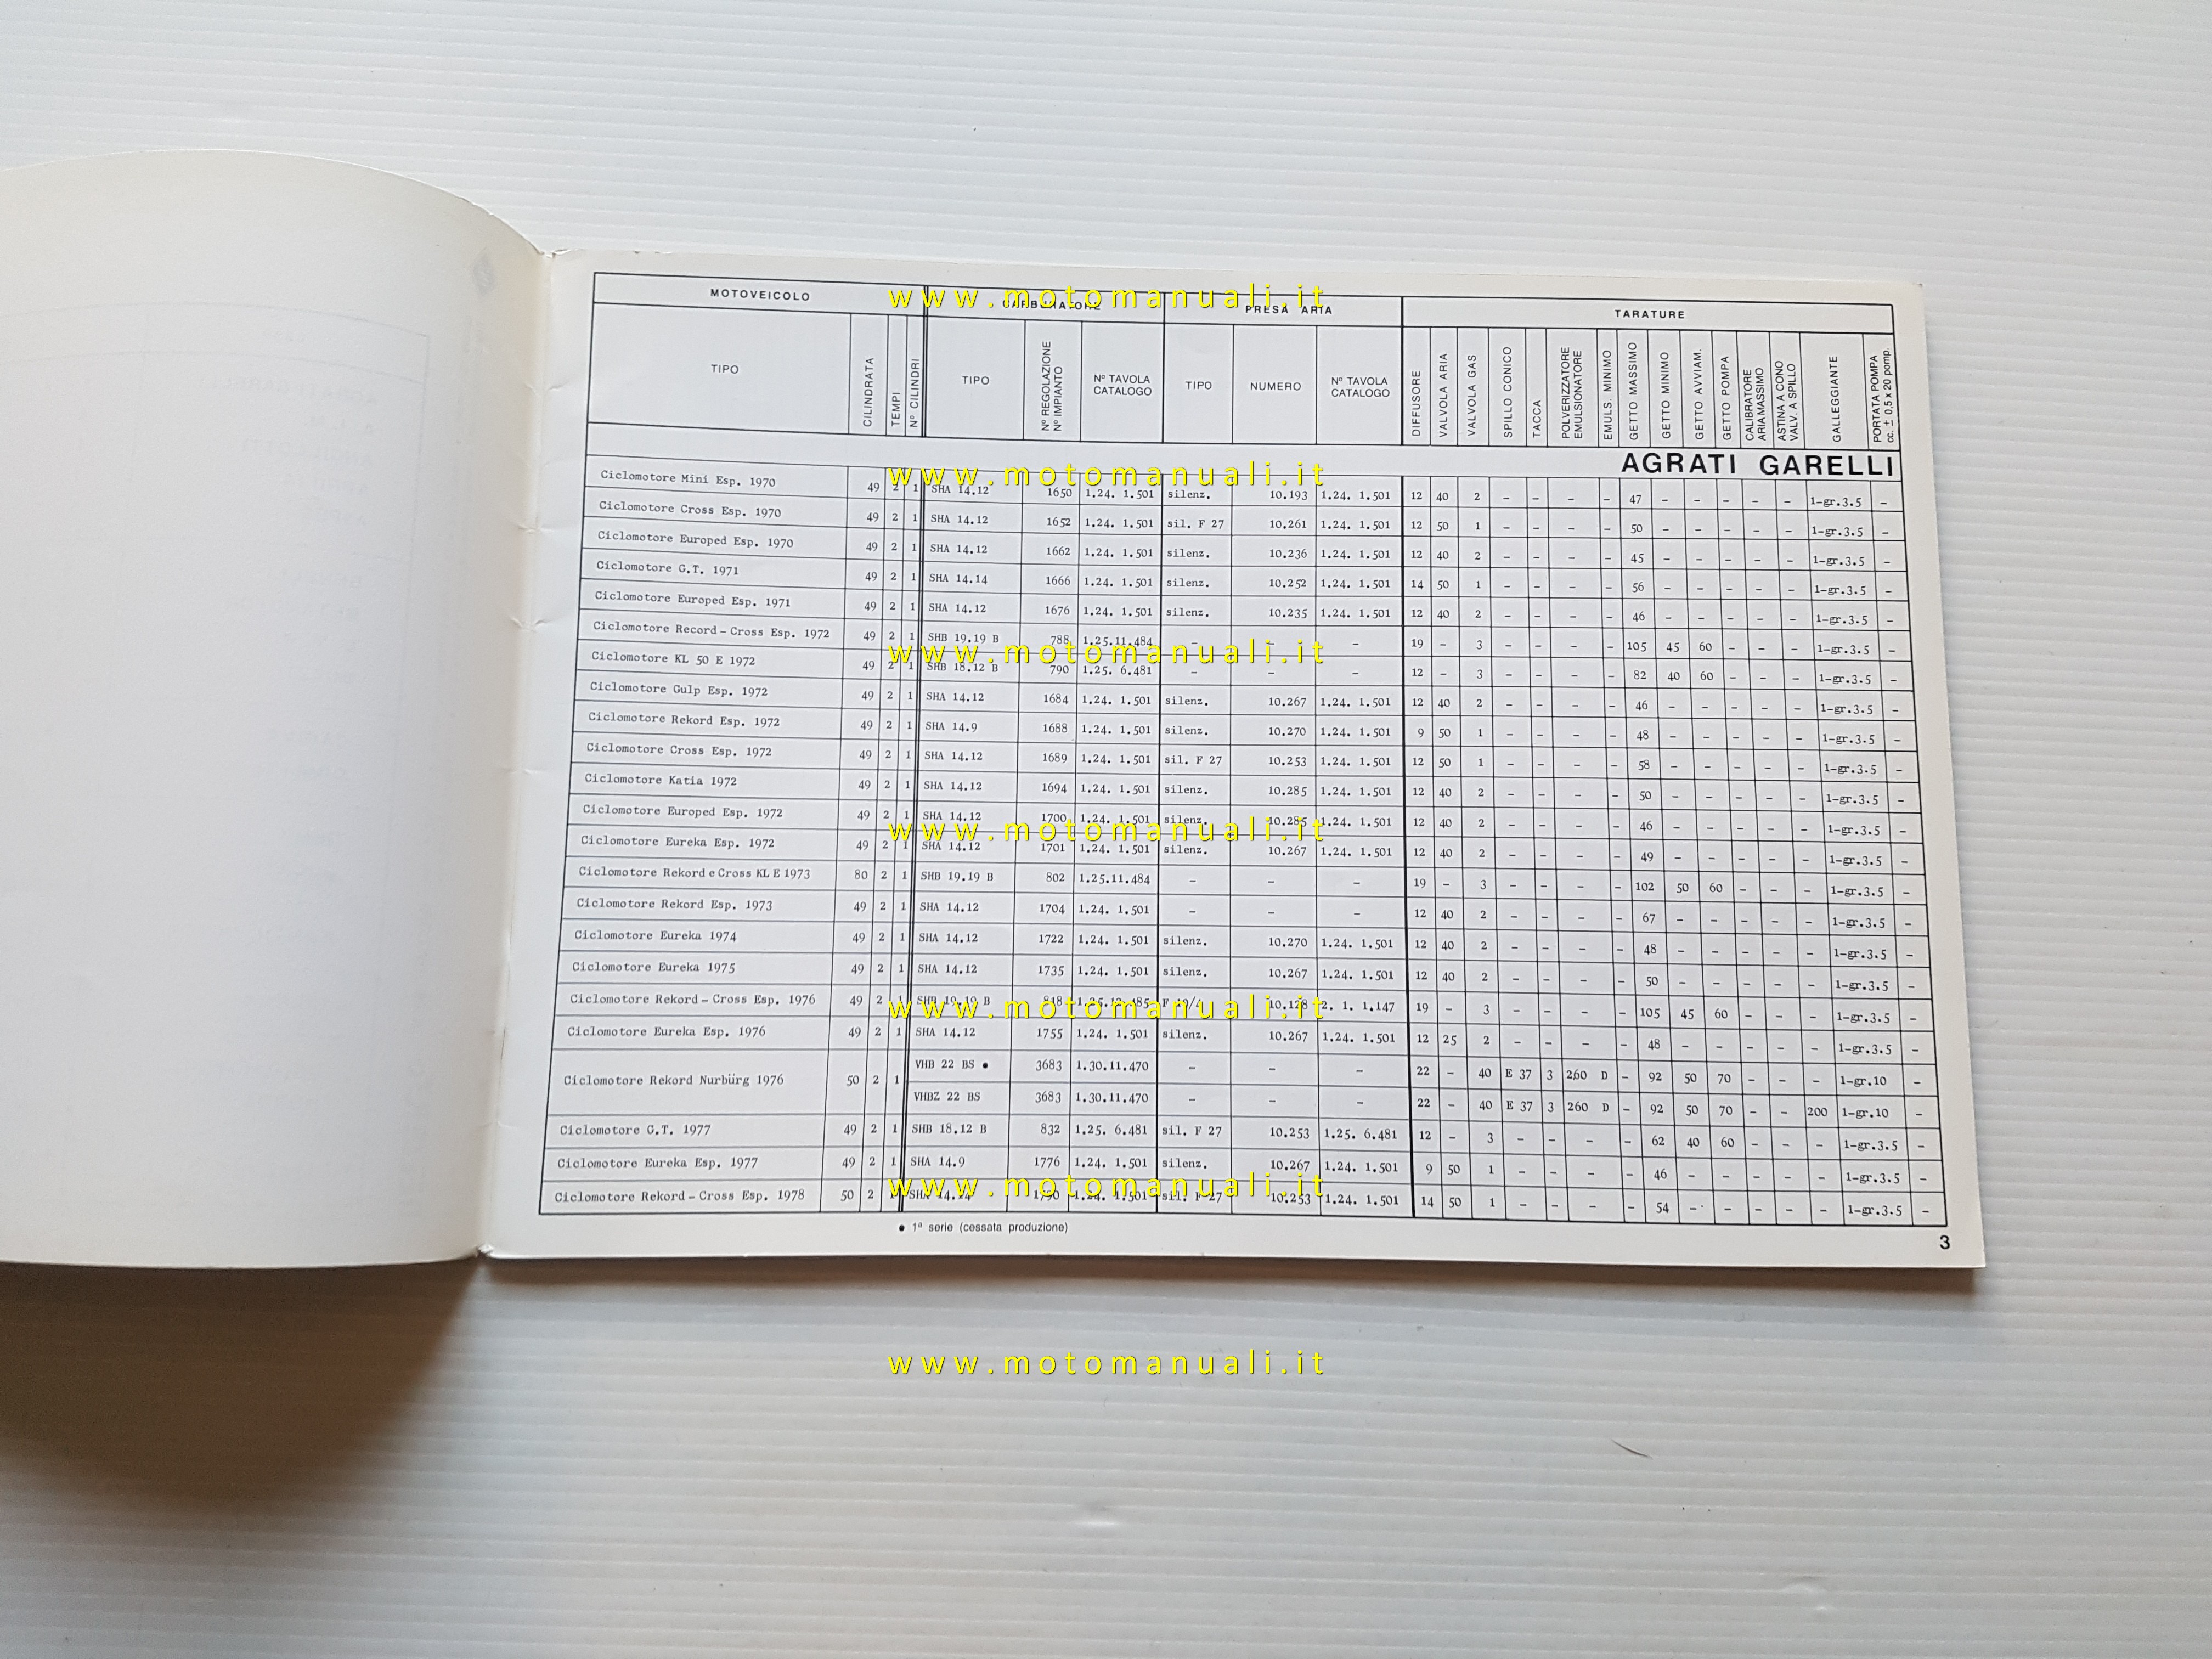 MOTOVEICOLO CARBURATORE PRESA ARIA TARATURE
TIPO CILINDRATA TEMPI Nº CILINDRI TIPO Nº REGOLAZIONE Nº IMPIANTO Nº TAVOLA CATALOGO TIPO NUMERO Nº TAVOLA CATALOGO DIFFUSORE VALVOLA ARIA VALVOLA GAS SPILLO CONICO TACCA POLVERIZZATORE EMULSIONATORE EMULS. MINIMO GETTO MASSIMO GETTO MINIMO GETTO AVVIAM. GETTO POMPA CALIBRATORE ARIA MASSIMO ASTINA A CONO VALV. A SPILLO GALLEGGIANTE PORTATA POMPA cc. ± 0,5 x 20 pomp.
AGRATI GARELLI
Ciclomotore Mini Esp. 1970 49 2 1 SHA 14.12 1650 1.24. 1.501 silenz. 10.193 1.24. 1.501 12 40 2 – – – – 47 – – – – – 1-gr.3.5 –
Ciclomotore Cross Esp. 1970 49 2 1 SHA 14.12 1652 1.24. 1.501 sil. F 27 10.261 1.24. 1.501 12 50 1 – – – – 50 – – – – – 1-gr.3.5 –
Ciclomotore Europed Esp. 1970 49 2 1 SHA 14.12 1662 1.24. 1.501 silenz. 10.236 1.24. 1.501 12 40 2 – – – – 45 – – – – – 1-gr.3.5 –
Ciclomotore G.T. 1971 49 2 1 SHA 14.14 1666 1.24. 1.501 silenz. 10.252 1.24. 1.501 14 50 1 – – – – 56 – – – – – 1-gr.3.5 –
Ciclomotore Europed Esp. 1971 49 2 1 SHA 14.12 1676 1.24. 1.501 silenz. 10.235 1.24. 1.501 12 40 2 – – – – 46 – – – – – 1-gr.3.5 –
Ciclomotore Record - Cross Esp. 1972 49 2 1 SHB 19.19 B 788 1.25.11.484 – – – 19 – 3 – – – – 105 45 60 – – – 1-gr.3.5 –
Ciclomotore KL 50 E 1972 49 2 1 SHB 18.12 B 790 1.25. 6.481 – – – 12 – 3 – – – – 82 40 60 – – – 1-gr.3.5 –
Ciclomotore Gulp Esp. 1972 49 2 1 SHA 14.12 1684 1.24. 1.501 silenz. 10.267 1.24. 1.501 12 40 2 – – – – 46 – – – – – 1-gr.3.5 –
Ciclomotore Rekord Esp. 1972 49 2 1 SHA 14.9 1688 1.24. 1.501 silenz. 10.270 1.24. 1.501 9 50 1 – – – – 48 – – – – – 1-gr.3.5 –
Ciclomotore Cross Esp. 1972 49 2 1 SHA 14.12 1689 1.24. 1.501 sil. F 27 10.253 1.24. 1.501 12 50 1 – – – – 58 – – – – – 1-gr.3.5 –
Ciclomotore Katia 1972 49 2 1 SHA 14.12 1694 1.24. 1.501 silenz. 10.285 1.24. 1.501 12 40 2 – – – – 50 – – – – – 1-gr.3.5 –
Ciclomotore Europed Esp. 1972 49 2 1 SHA 14.12 1700 1.24. 1.501 silenz. 10.285 1.24. 1.501 12 40 2 – – – – 46 – – – – – 1-gr.3.5 –
Ciclomotore Eureka Esp. 1972 49 2 1 SHA 14.12 1701 1.24. 1.501 silenz. 10.267 1.24. 1.501 12 40 2 – – – – 49 – – – – – 1-gr.3.5 –
Ciclomotore Rekord e Cross KL E 1973 80 2 1 SHB 19.19 B 802 1.25.11.484 – – – 19 – 3 – – – – 102 50 60 – – – 1-gr.3.5 –
Ciclomotore Rekord Esp. 1973 49 2 1 SHA 14.12 1704 1.24. 1.501 – – – 12 40 2 – – – – 67 – – – – – 1-gr.3.5 –
Ciclomotore Eureka 1974 49 2 1 SHA 14.12 1722 1.24. 1.501 silenz. 10.270 1.24. 1.501 12 40 2 – – – – 48 – – – – – 1-gr.3.5 –
Ciclomotore Eureka 1975 49 2 1 SHA 14.12 1735 1.24. 1.501 silenz. 10.267 1.24. 1.501 12 40 2 – – – – 50 – – – – – 1-gr.3.5 –
Ciclomotore Rekord - Cross Esp. 1976 49 2 1 SHB 19.19 B 10.128 2. 1. 1.147 19 – 3 – – – – 105 45 60 – – – 1-gr.3.5 –
Ciclomotore Eureka Esp. 1976 49 2 1 SHA 14.12 1755 1.24. 1.501 silenz. 10.267 1.24. 1.501 12 25 2 – – – – 48 – – – – – 1-gr.3.5 –
Ciclomotore Rekord Nurbürg 1976 50 2 1 VHB 22 BS ● 3683 1.30.11.470 – – – 22 – 40 E 37 3 260 D – 92 50 70 – – – 1-gr.10 –
VHBZ 22 BS 3683 1.30.11.470 – – – 22 – 40 E 37 3 260 D – 92 50 70 – – 200 1-gr.10 –
Ciclomotore G.T. 1977 49 2 1 SHB 18.12 B 832 1.25. 6.481 sil. F 27 10.253 1.25. 6.481 12 – 3 – – – – 62 40 60 – – – 1-gr.3.5 –
Ciclomotore Eureka Esp. 1977 49 2 1 SHA 14.9 1776 1.24. 1.501 silenz. 10.267 1.24. 1.501 9 50 1 – – – – 46 – – – – – 1-gr.3.5 –
Ciclomotore Rekord - Cross Esp. 1978 50 2 SHA 14.14 1790 1.24. 1.501 sil. F 27 10.253 1.24. 1.501 14 50 1 – – – – 54 – – – – – 1-gr.3.5 –
● 1ª serie (cessata produzione)
3
www.motomanuali.it
www.motomanuali.it
www.motomanuali.it
www.motomanuali.it
www.motomanuali.it
www.motomanuali.it
www.motomanuali.it